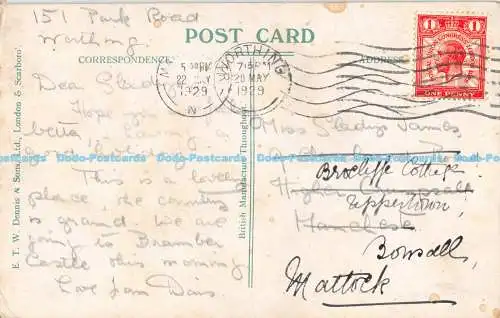 151 Park Road
Worthing.
POST CARD
CORRESPONDENCE
ADDRESS
Dear Gladys
Hope you
better, having a
good holiday.
This is a lovely
place the country
is grand we are
going to Bramber
Castle this morning
Love from Doris
E. T. W. Dennis & Sons, Ltd., London & Scarboro'
British Manufacture Throughout
WORTHING
7:15 PM
20 MAY
1929
22 MY
1929
N
ONE PENNY
Miss Gladys James
Brocliffe Cottage
Uppertown
Manchester
Bonsall
Matlock
Dodo-Postcards Dodo-Postcards Dodo-Postcards Dodo-Postcards